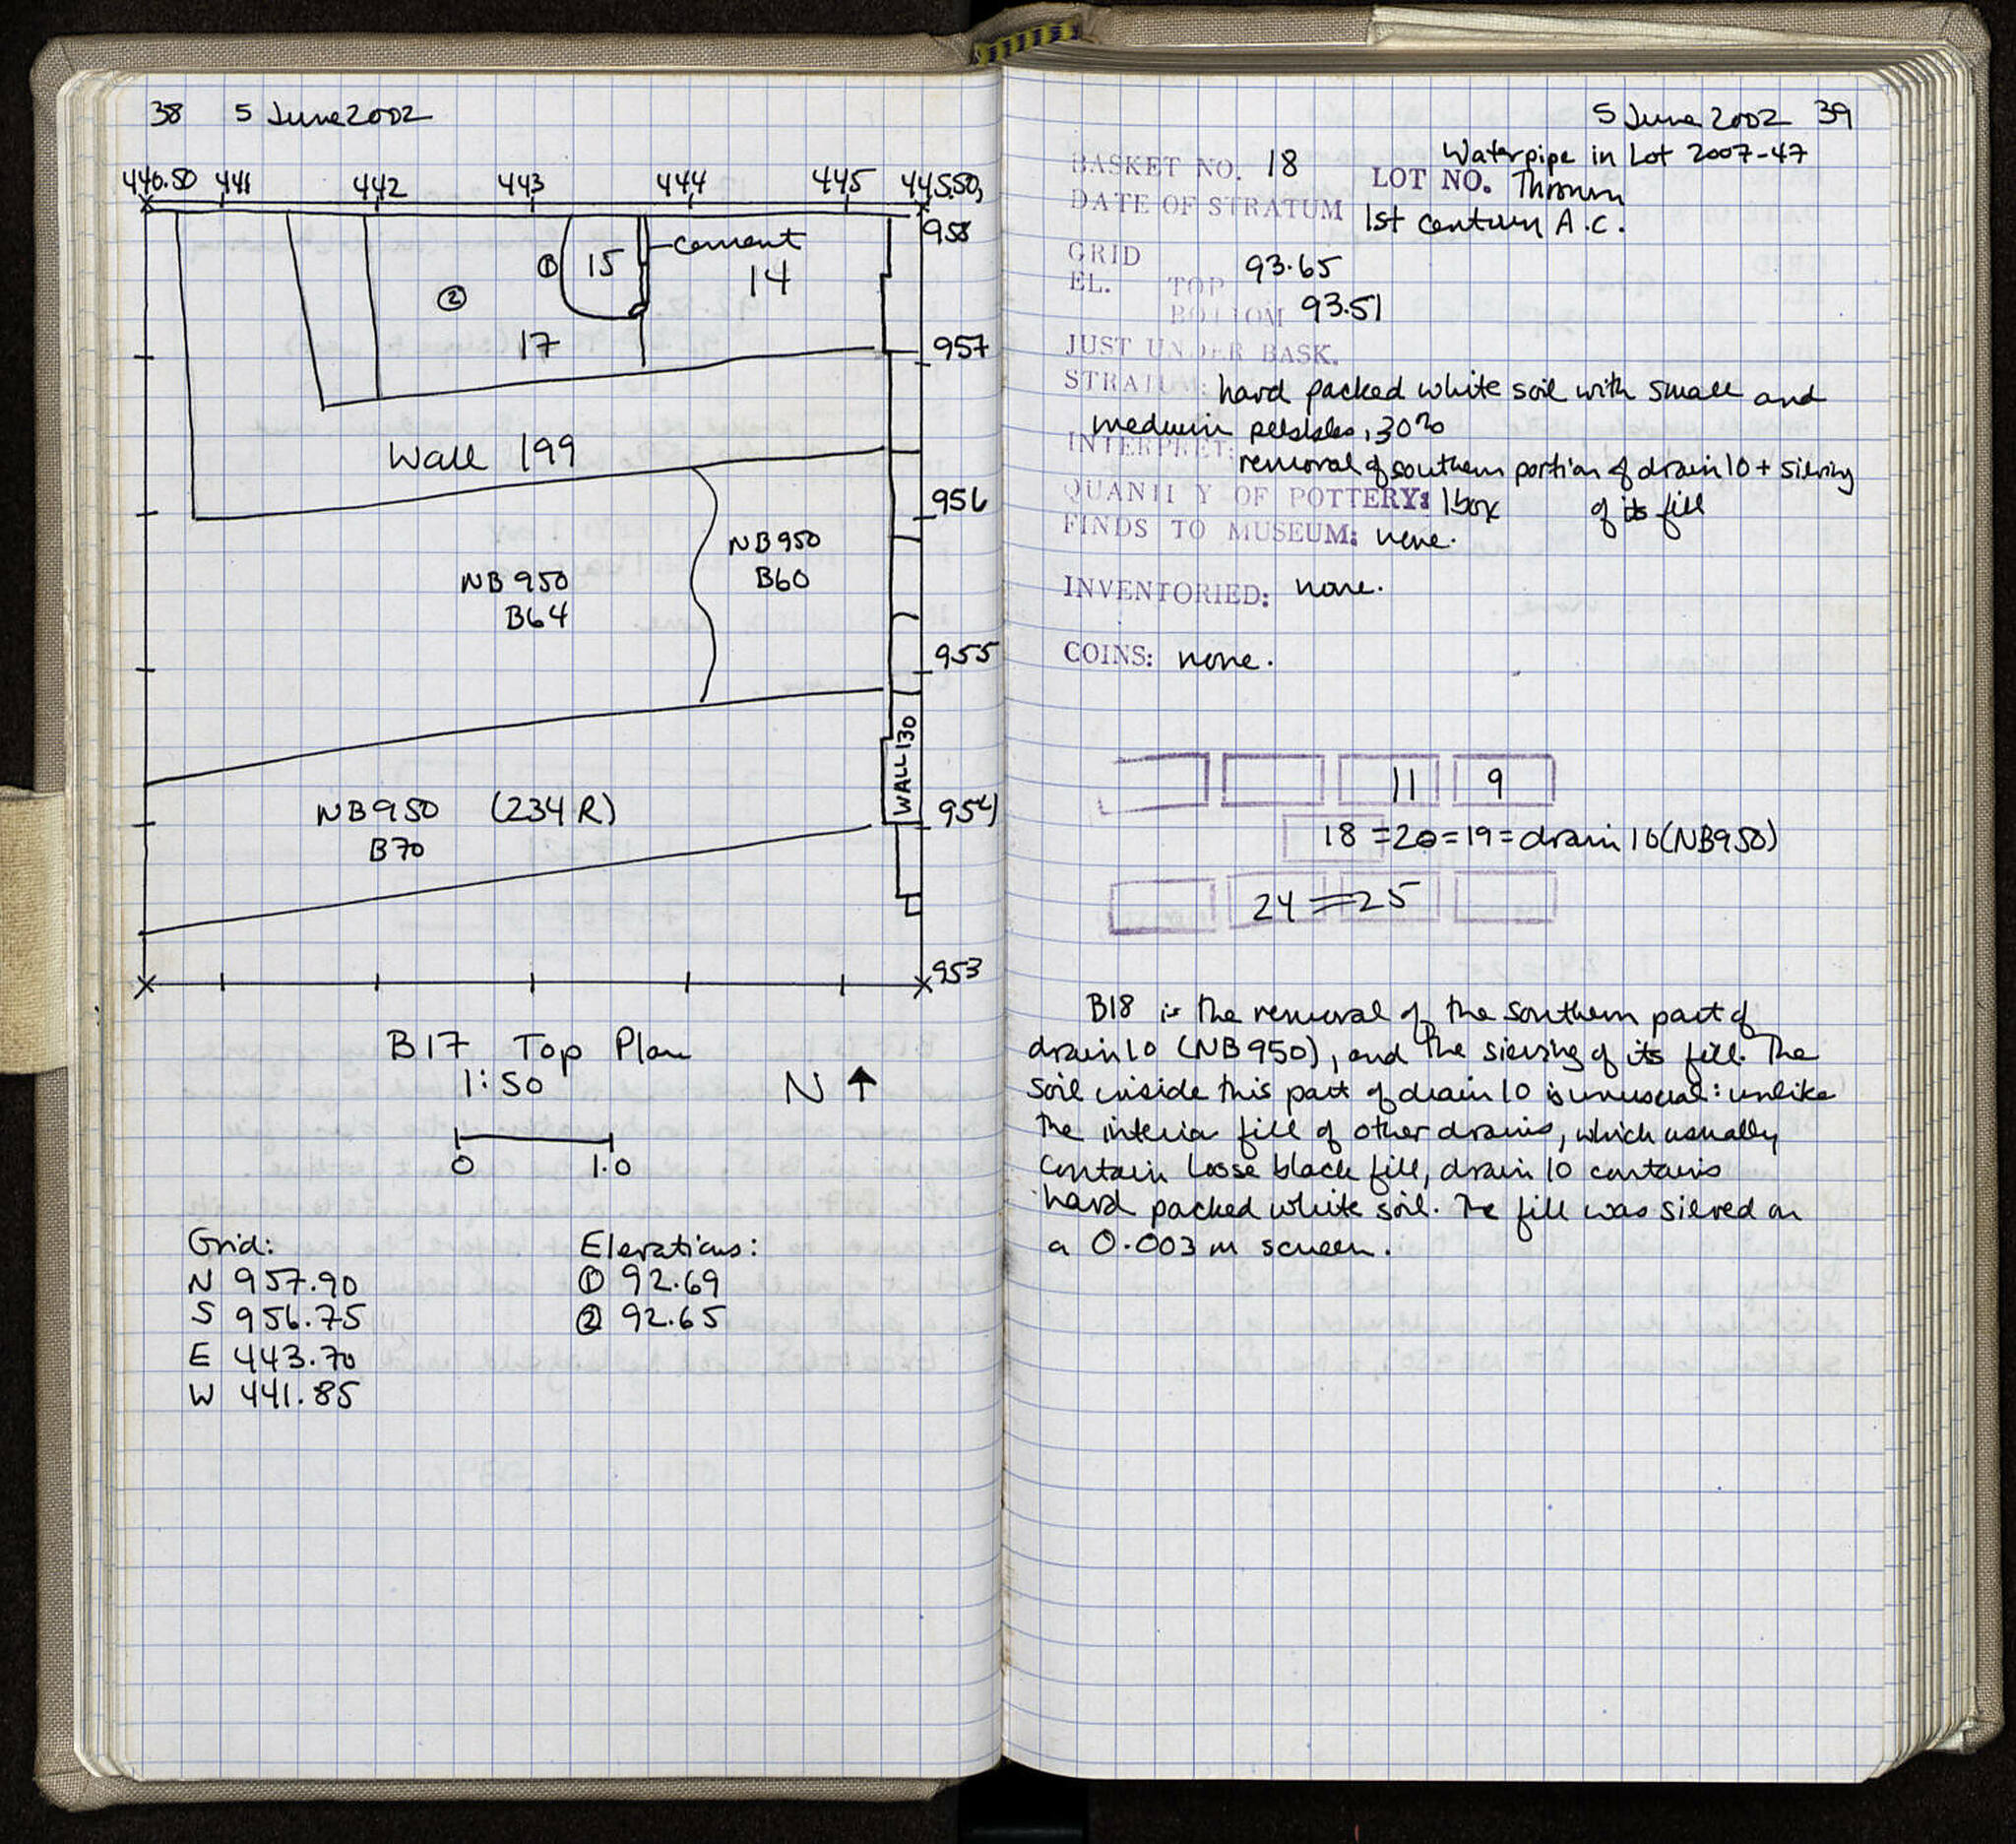 38 5 June 2002
440.50 441 442 443 444 445 445.50,
958
cement
① 15
14
②
17
957
Wall 199
956
NB950
B60
NB950
B64
955
WALL 130
NB950 (234 R)
B70
954
953
B17 Top Plan
1:50 N
0 1.0
Grid:
N 957.90
S 956.75
E 443.70
W 441.85
Elevations:
① 92.69
② 92.65
5 June 2002 39
Waterpipe in Lot 2007-47
BASKET NO. 18 LOT NO. Thrown
DATE OF STRATUM 1st century A.C.
GRID
EL. TOP 93.65
BOTTOM 93.51
JUST UNDER BASK.
STRATUM: hard packed white soil with small and
medium pebbles, 30%
INTERPRET: removal of southern portion of drain 10 + sieving
of its fill
QUANTITY OF POTTERY: 1 box
FINDS TO MUSEUM: none.
INVENTORIED: none.
COINS: none.
11 9
18 = 20 = 19 = drain 10 (NB950)
24 = 25
B18 is the removal of the southern part of
drain 10 (NB950), and the sieving of its fill. The
soil inside this part of drain 10 is unusual: unlike
the interior fill of other drains, which usually
contain loose black fill, drain 10 contains
hard packed white soil. The fill was sieved on
a 0.003 m screen.